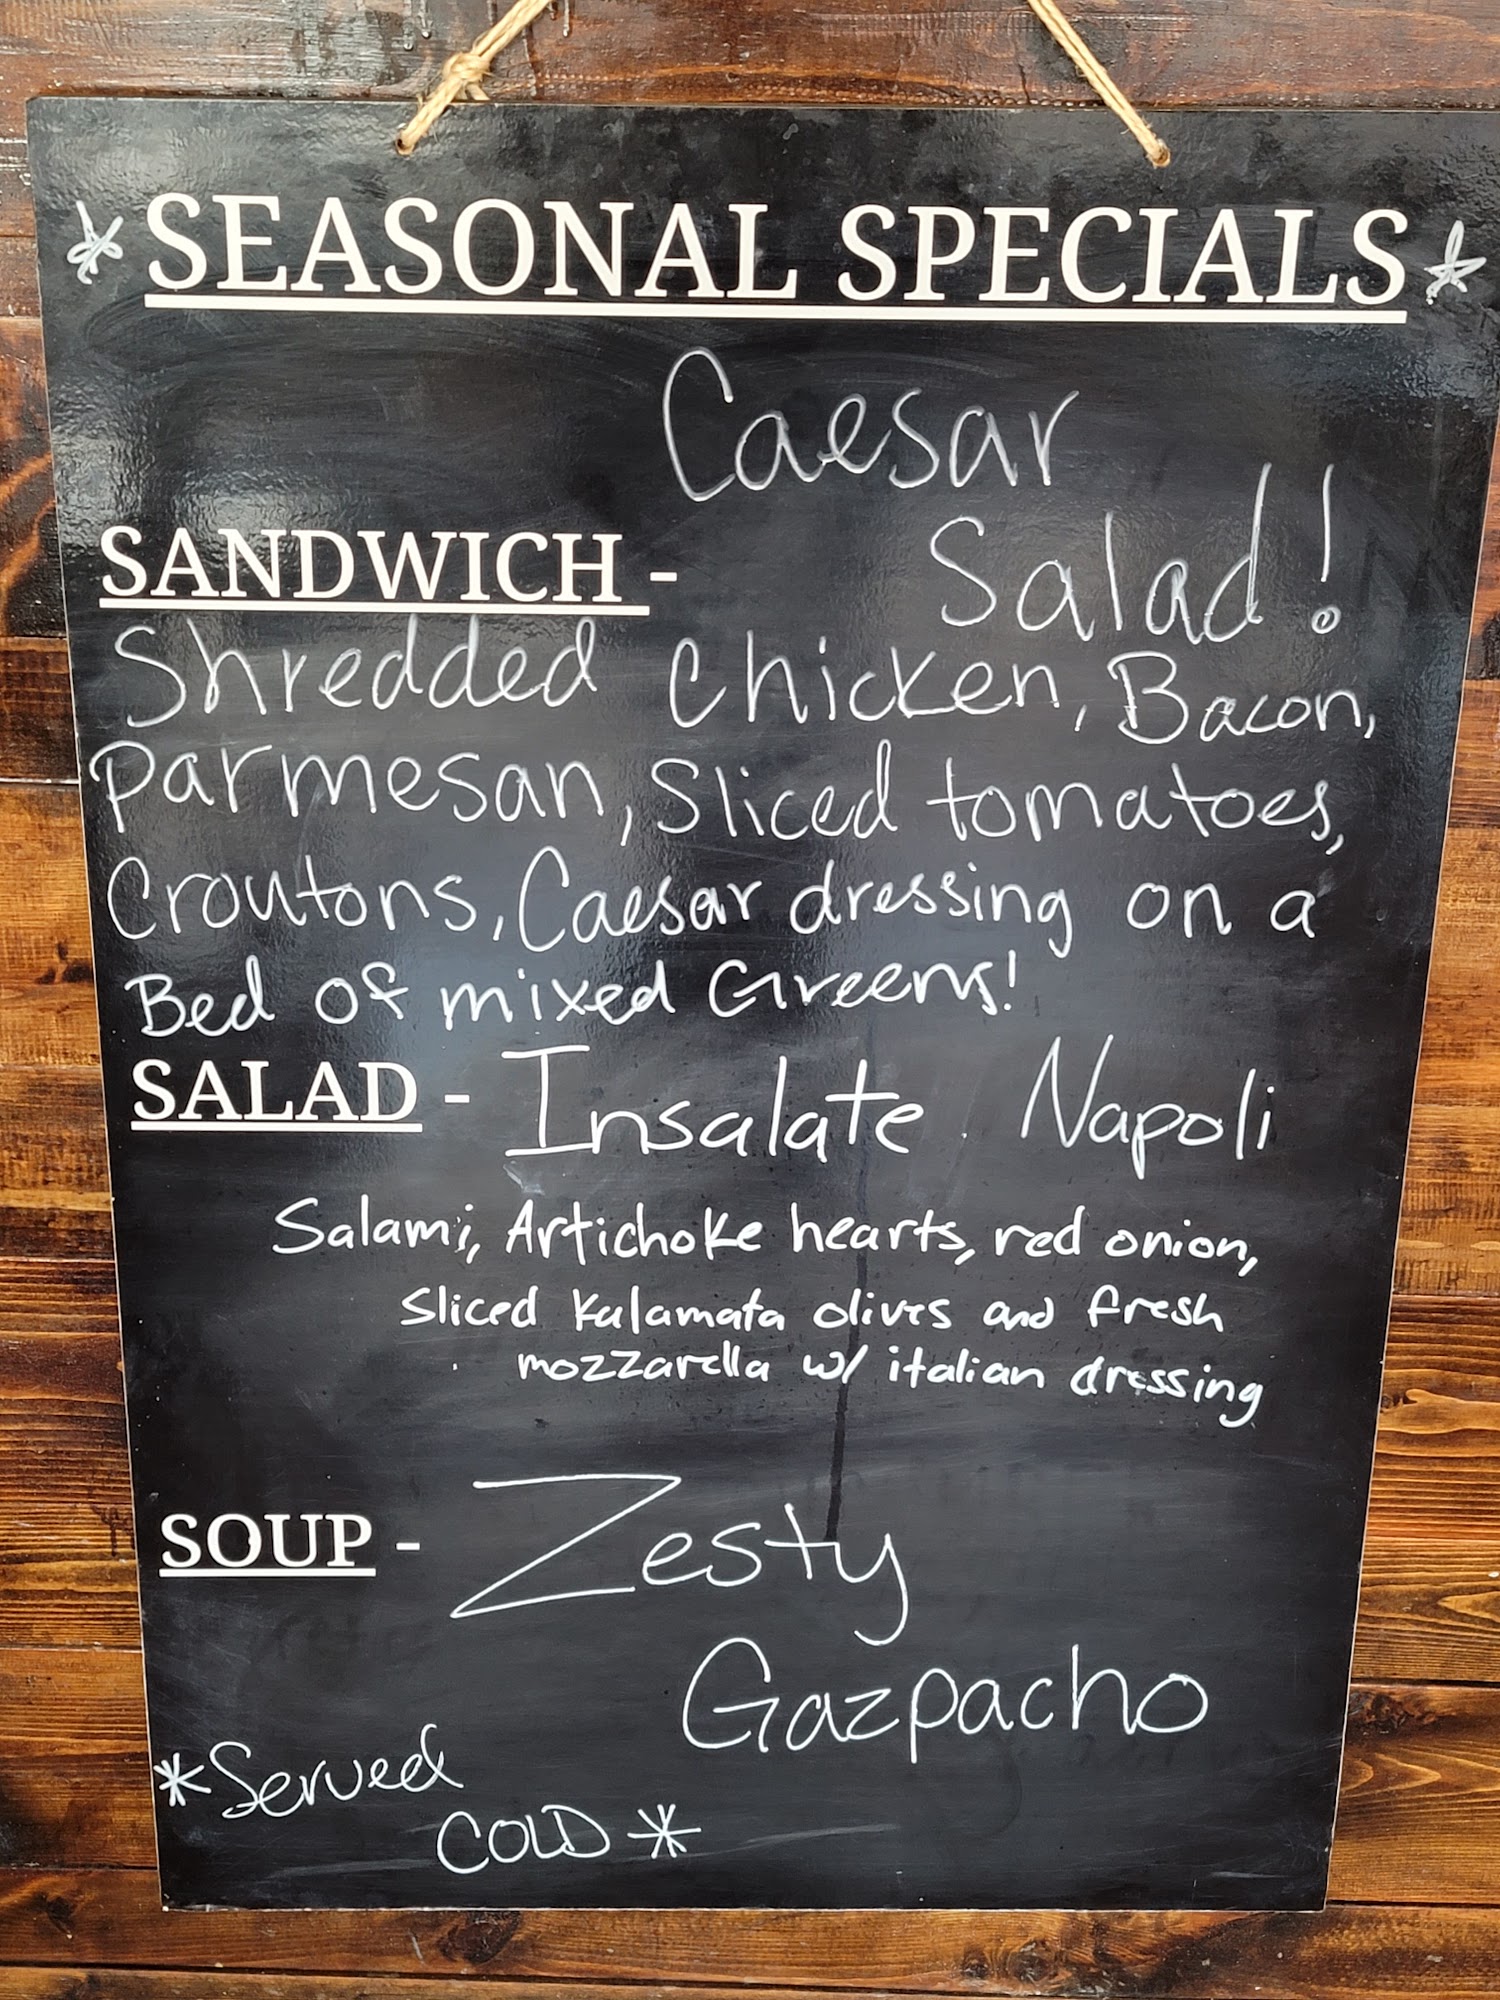 * SEASONAL SPECIALS *
Caesar
SANDWICH - Salad!
Shredded Chicken, Bacon,
Parmesan, Sliced tomatoes,
Croutons, Caesar dressing on a
Bed of mixed Greens!
SALAD - Insalate Napoli
Salami, Artichoke hearts, red onion,
sliced Kalamata olives and fresh
mozzarella w/ italian dressing
SOUP - Zesty
Gazpacho
*Served
COLD *